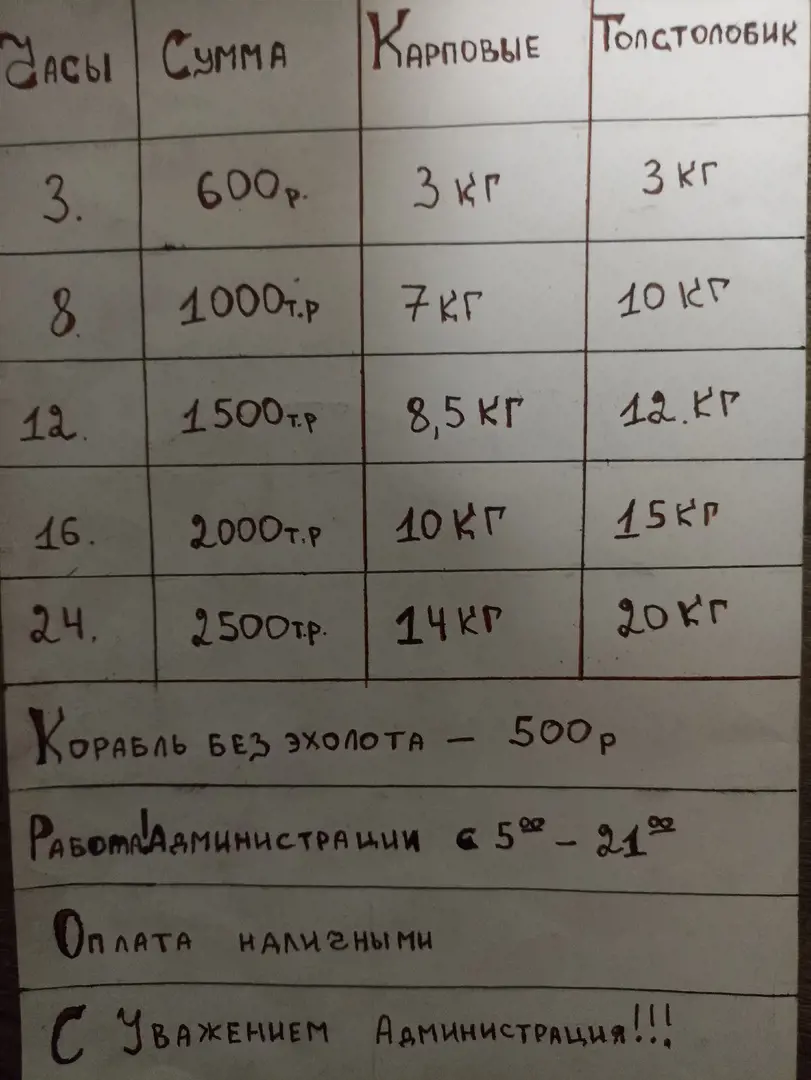 Часы Сумма Карповые Толстолобик
3. 600р. 3 кг 3 кг
8. 1000т.р 7 кг 10 кг
12. 1500т.р 8,5 кг 12.кг
16. 2000т.р 10 кг 15 кг
24. 2500т.р. 14 кг 20 кг
Корабль без эхолота – 500р
Работа!Администрации с 5⁰⁰ – 21⁰⁰
Оплата наличными
С Уважением Администрация!!!